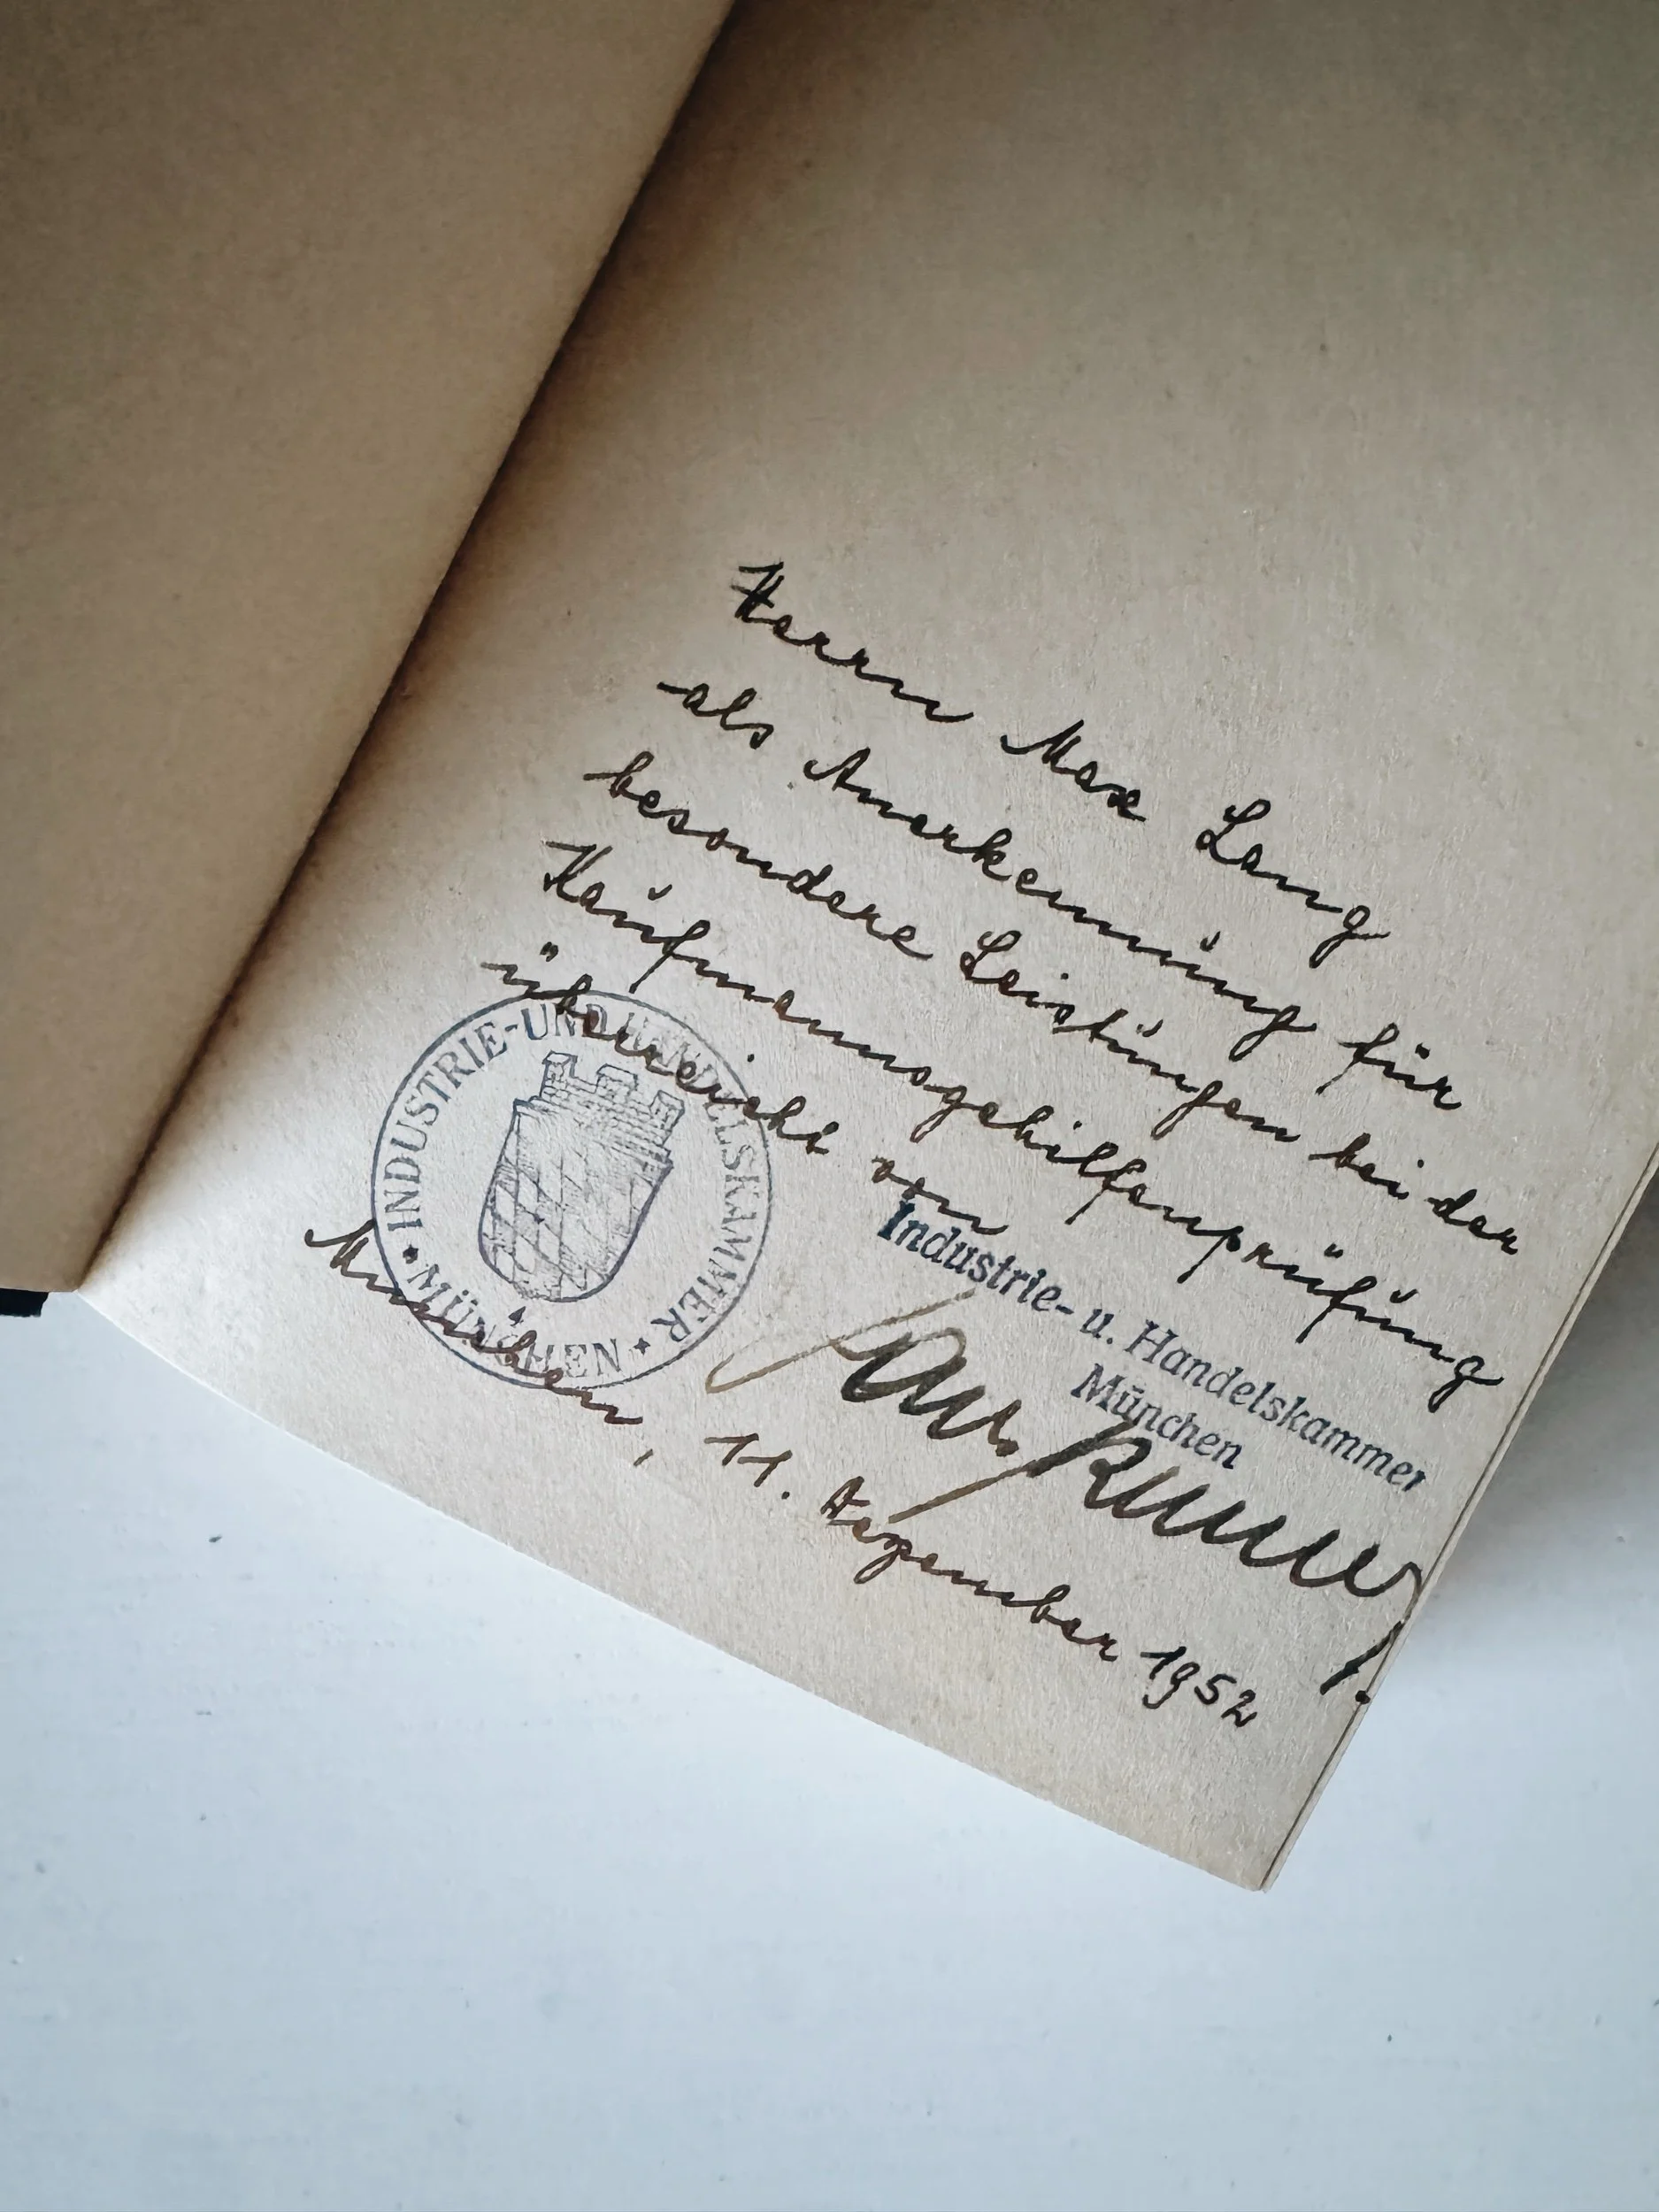 Herrn Max Lang
als Anerkennung für
besondere Leistungen bei der
Kaufmannsgehilfenprüfung
überreicht von
Industrie- u. Handelskammer
München
INDUSTRIE-UND HANDELSKAMMER
MÜNCHEN
München, 11. Dezember 1952